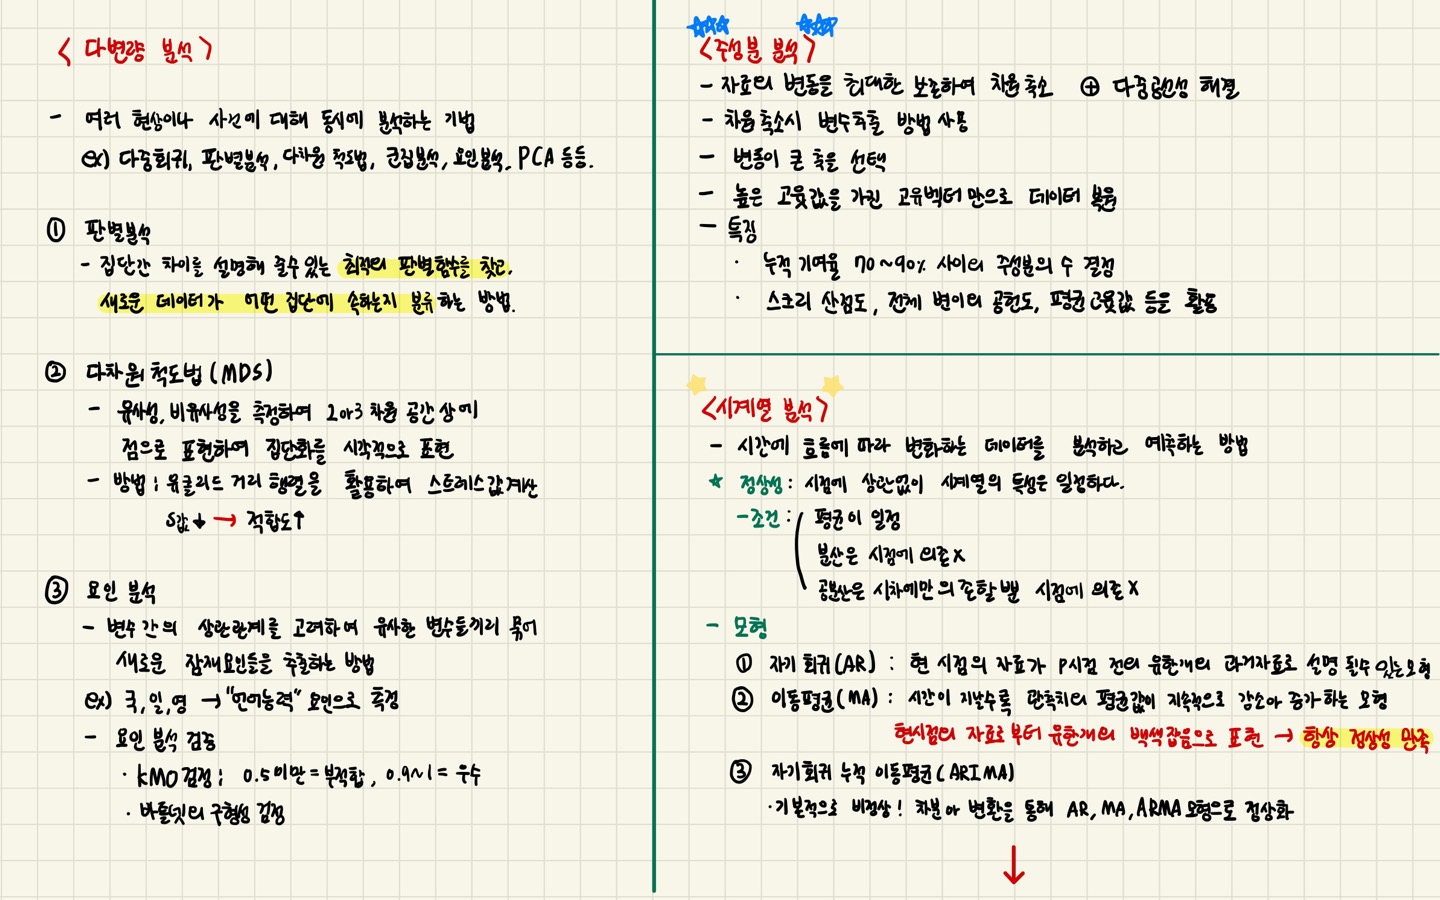 <다변량 분석>
- 여러 현상이나 사건에 대해 동시에 분석하는 기법
ex) 다중회귀, 판별분석, 다차원 척도법, 군집분석, 요인분석, PCA 등등.
① 판별분석
- 집단간 차이를 설명해 줄수있는 최적의 판별함수를 찾고,
새로운 데이터가 어떤 집단에 속하는지 분류하는 방법.
② 다차원 척도법 (MDS)
- 유사성, 비유사성을 측정하여 2 or 3 차원 공간 상에
점으로 표현하여 집단화를 시각적으로 표현
- 방법 : 유클리드 거리 행렬을 활용하여 스트레스값 계산
S값↓ → 적합도↑
③ 요인 분석
- 변수 간의 상관관계를 고려하여 유사한 변수들끼리 묶어
새로운 잠재요인들을 추출하는 방법
ex) 국, 일, 영 → "언어능력" 요인으로 측정
- 요인 분석 검증
· KMO 검정 : 0.5미만 = 부적합, 0.9~1 = 우수
· 바틀렛의 구형성 검정
<주성분 분석>
- 자료의 변동을 최대한 보존하여 차원축소 ⊕ 다중공선성 해결
- 차원축소시 변수추출 방법 사용
- 변동이 큰 축을 선택
- 높은 고윳값을 가진 고유벡터만으로 데이터 복원
- 특징
· 누적 기여율 70~90% 사이의 주성분의 수 결정
· 스크리 산점도, 전체 변이의 공헌도, 평균고윳값 등을 활용
<시계열 분석>
- 시간에 흐름에 따라 변화하는 데이터를 분석하고 예측하는 방법
★ 정상성 : 시점에 상관없이 시계열의 특성은 일정하다.
- 조건 : ( 평균이 일정
분산은 시점에 의존 X
공분산은 시차에만 의존할 뿐 시점에 의존 X
- 모형
① 자기 회귀(AR) : 현 시점의 자료가 P시점 전의 유한개의 과거자료로 설명 될수 있는 모형
② 이동평균(MA) : 시간이 지날수록 관측치의 평균값이 지속적으로 감소아 증가하는 모형
현시점의 자료로부터 유한개의 백색잡음으로 표현 → 항상 정상성 만족
③ 자기회귀 누적 이동평균(ARIMA)
· 기본적으로 비정상! 차분아 변환을 통해 AR, MA, ARMA 모형으로 정상화
↓